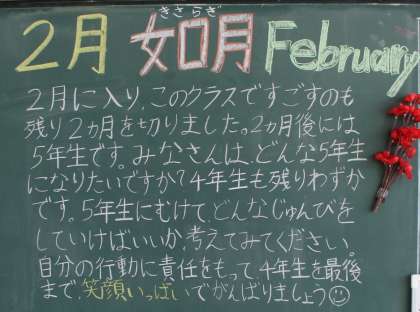 きさらぎ
2月 如月 February
2月に入り、このクラスですごすのも
残り2ヵ月を切りました。2ヵ月後には
5年生です。みなさんは、どんな5年生
になりたいですか?4年生も残りわずか
です。5年生にむけて、どんなじゅんびを
していけばいいか、考えてみてください。
自分の行動に責任をもって、4年生を最後
まで、笑顔いっぱいでがんばりましょう☺